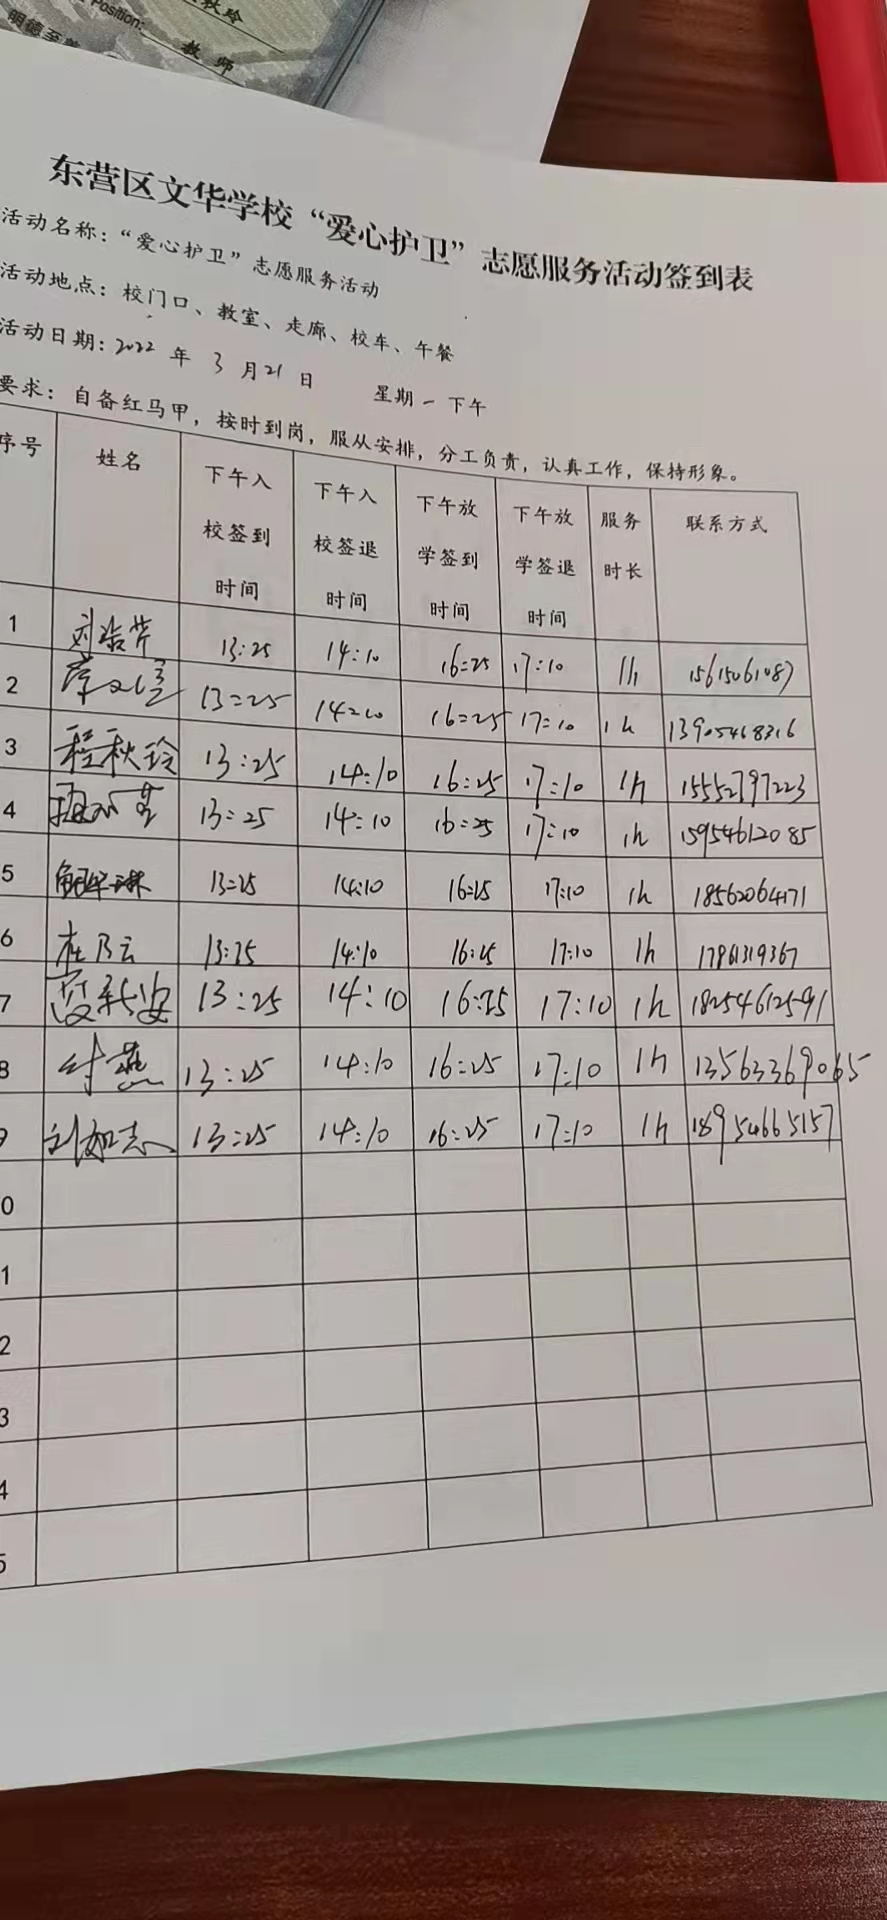 Position:
秋玲
教师
明德至善
东营区文华学校“爱心护卫”志愿服务活动签到表
活动名称：“爱心护卫”志愿服务活动
活动地点：校门口、教室、走廊、校车、午餐
活动日期：2022年3月21日 星期一下午
要求：自备红马甲，按时到岗，服从安排，分工负责，认真工作，保持形象。
序号 姓名 下午入校签到时间 下午入校签退时间 下午放学签到时间 下午放学签退时间 服务时长 联系方式
1 13:25 14:10 16:25 17:10 1h 15615061087
2 13:25 14:10 16:25 17:10 1h 13905468316
3 程秋玲 13:25 14:10 16:25 17:10 1h 15552797223
4 13:25 14:10 16:25 17:10 1h 15954612085
5 13:25 14:10 16:25 17:10 1h 18562064171
6 杜乃云 13:25 14:10 16:25 17:10 1h 17861319367
7 13:25 14:10 16:25 17:10 1h 18254612591
8 付燕 13:25 14:10 16:25 17:10 1h 13563369065
9 刘如志 13:25 14:10 16:25 17:10 1h 18954665157
0
1
2
3
4
5